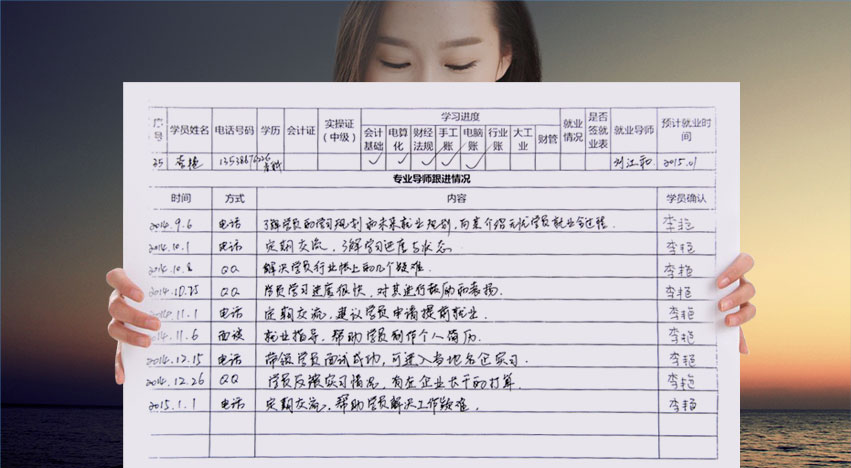 序号 学员姓名 电话号码 学历 会计证 实操证（中级） 学习进度 就业情况 是否签就业表 就业导师 预计就业时间
会计基础 电算化 财经法规 手工账 电脑账 行业账 大工业 财管
25 李艳 ✓ ✓ ✓ ✓ ✓ 2015.01
专业导师跟进情况
时间 方式 内容 学员确认
2014.9.6 电话 了解学员的学习规划和未来就业规划，向其介绍无忧学员就业全过程. 李艳
2014.10.1 电话 定期交流，了解学习进度与状态. 李艳
2014.10.8 QQ 解决学员行业账上的几个疑难. 李艳
2014.10.25 QQ 学员学习进度很快，对其进行鼓励和表扬. 李艳
2014.11.1 电话 定期交流，建议学员申请提前就业. 李艳
2014.11.6 面谈 就业指导，帮助学员制作个人简历. 李艳
2014.12.15 电话 带领学员面试成功，可进入当地名企实习. 李艳
2014.12.26 QQ 学员反馈实习情况，有在企业长干的打算. 李艳
2015.1.1 电话 定期交流，帮助学员解决工作疑难. 李艳